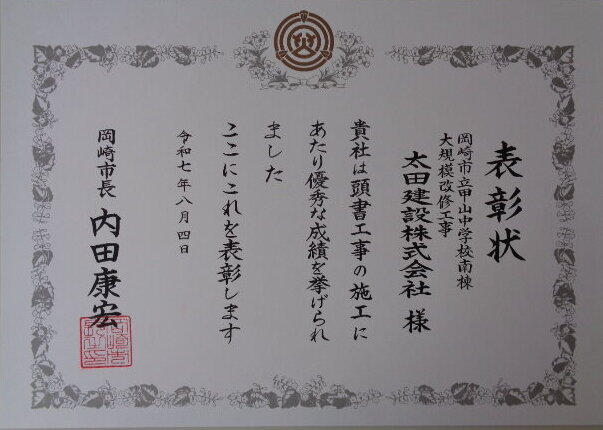 表彰状
岡崎市立甲山中学校南棟
大規模改修工事
太田建設株式会社 様
貴社は頭書工事の施工に
あたり優秀な成績を挙げられ
ました
ここにこれを表彰します
令和七年八月四日
岡崎市長 内田康宏